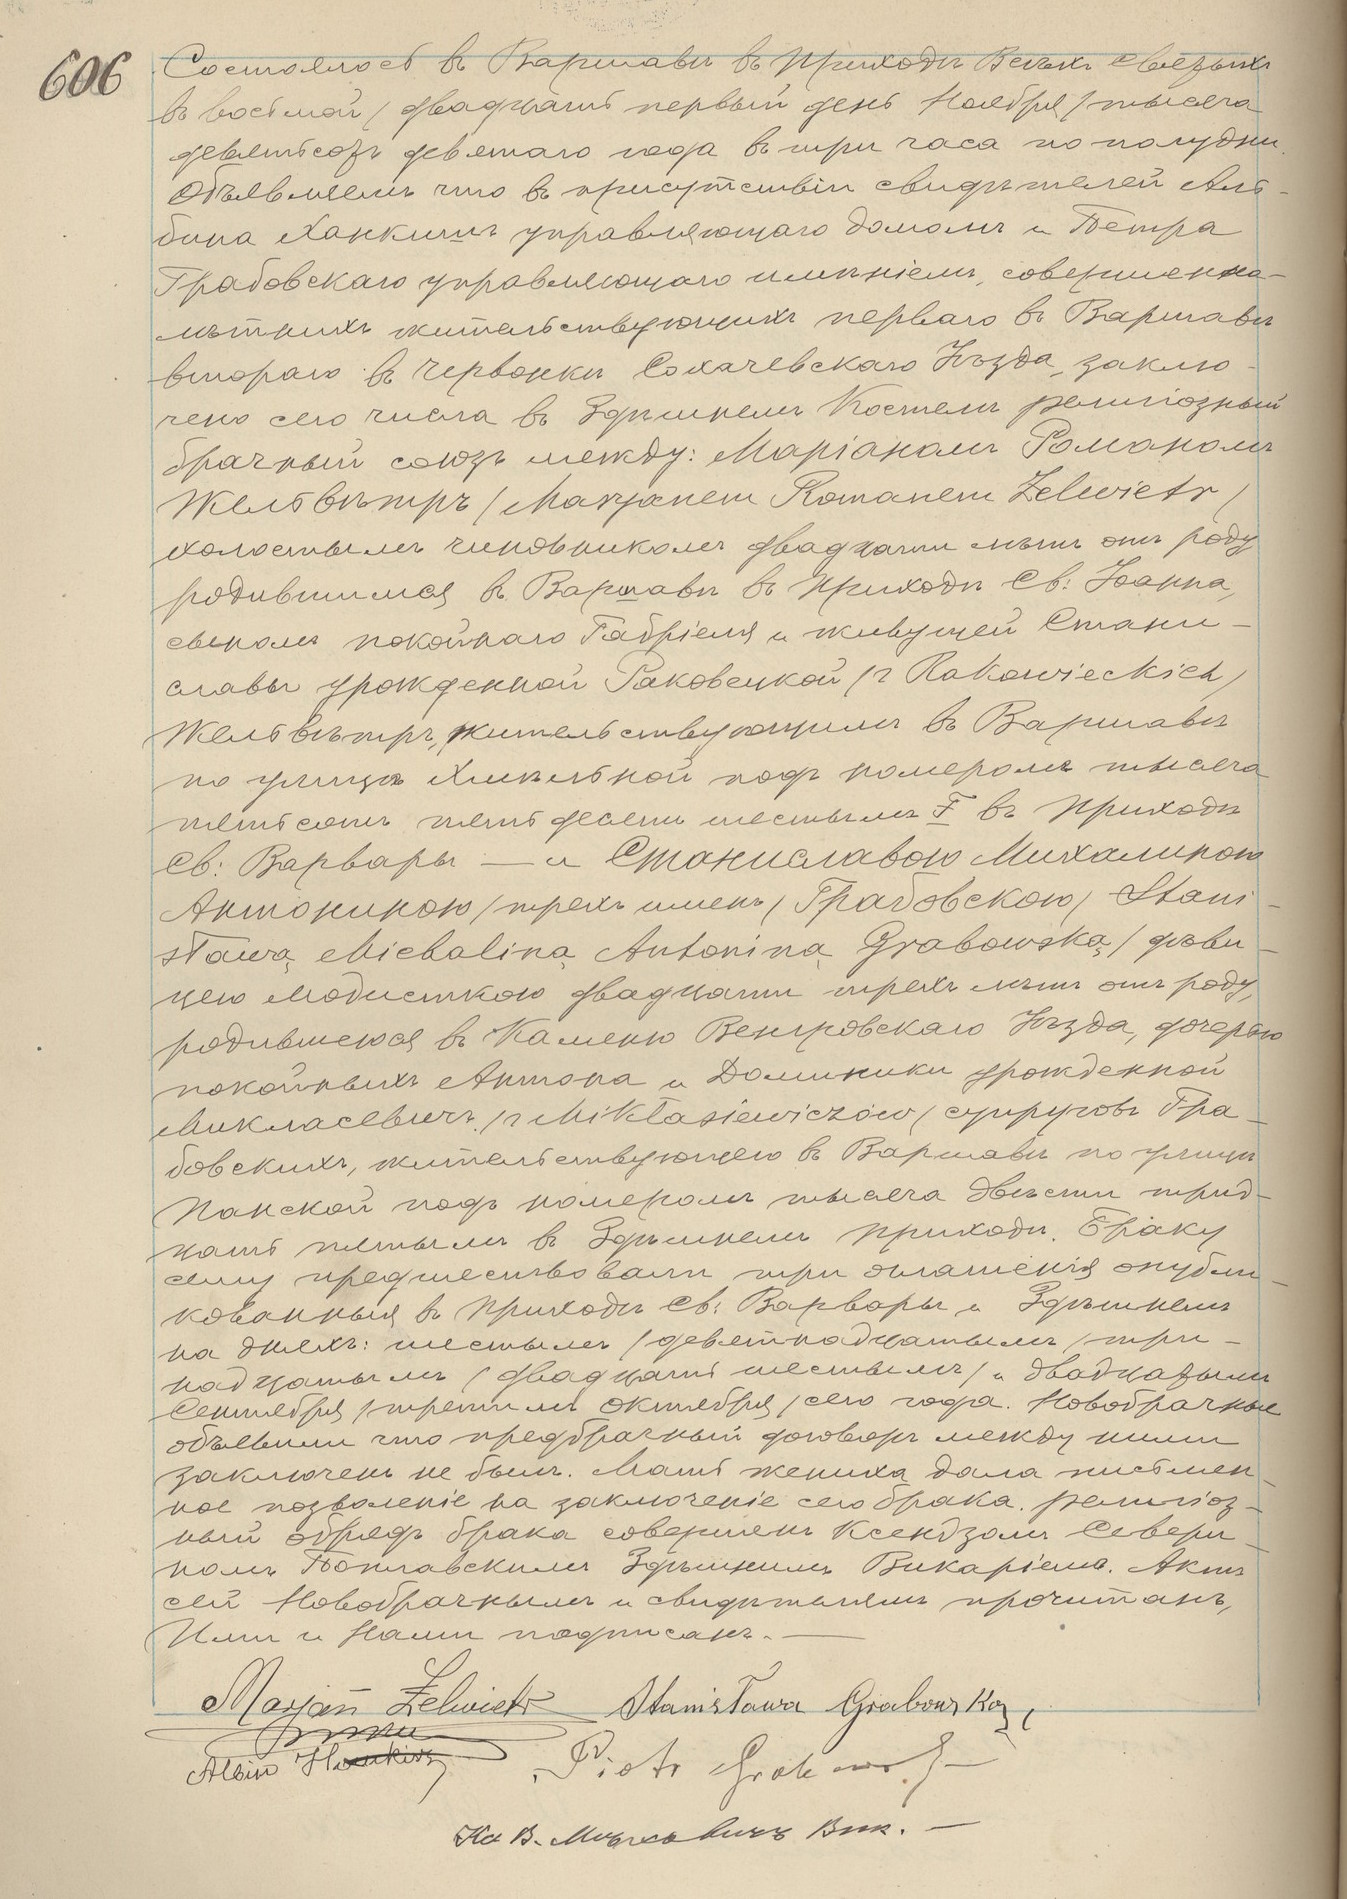 606
Состоялось въ Варшавѣ въ Приходѣ Всѣхъ Святыхъ
въ восьмой / двадцать первый день Ноября / тысяча
девятьсотъ девятаго года въ три часа по полудни.
Объявляемъ что въ присутствіи свидѣтелей Аль-
бина Ханкишъ управляющаго домомъ и Петра
Грабовскаго управляющаго имѣніемъ, совершенно-
лѣтнихъ жительствующихъ перваго въ Варшавѣ
втораго въ Червонки Сохачевскаго Уѣзда, заклю-
чено сего числа въ Здѣшнемъ Костелѣ религіозный
брачный союзъ между: Маріаномъ Романомъ
Желвѣтръ / Maryanem Romanem Żelwietr /
холостымъ чиновникомъ двадцати лѣтъ отъ роду
родившимся въ Варшавѣ въ Приходѣ Св: Іоанна,
сыномъ покойнаго Габріеля и живущей Стани-
славы урожденной Раковецкой / z Rakowieckich /
Желвѣтръ, жительствующимъ въ Варшавѣ
по улицѣ Хмѣльной подъ номеромъ тысяча
пятьсотъ пятьдесятъ шестымъ F въ Приходѣ
Св: Варвары — и Станиславою Михалиною
Антониною / трехъ именъ / Грабовскою / Stani-
sławą Michaliną Antoniną Grabowską / дѣви-
цею модисткою двадцати трехъ лѣтъ отъ роду,
родившеюся въ Каменю Венгровскаго Уѣзда, дочерью
покойныхъ Антона и Доминики урожденной
Микласевичъ / z Mikłasiewiczów / супруговъ Гра-
бовскихъ, жительствующею въ Варшавѣ по улицѣ
Панской подъ номеромъ тысяча двѣсти трид-
цать пятымъ въ Здѣшнемъ приходѣ. Браку
сему предшествовали три оглашенія опубли-
кованныя въ Приходѣ Св: Варвары и Здѣшнемъ
на дняхъ: шестымъ / девятнадцатымъ / три-
надцатымъ / двадцать шестымъ / и двадцатымъ
Сентября / третимъ Октября / сего года. Новобрачные
объявили что предбрачный договоръ между ними
заключенъ не былъ. Мать жениха дала письмен-
ное позволеніе на заключеніе сего брака. Религіоз-
ный обрядъ брака совершенъ Ксендзомъ Севери-
номъ Поплавскимъ Здѣшнимъ Викаріемъ. Актъ
сей Новобрачнымъ и свидѣтелямъ прочитанъ,
Ими и Нами подписанъ. —
Marjan Żelwietr Stanisława Grabowska
Albin Piotr
Кс В. Вик. —